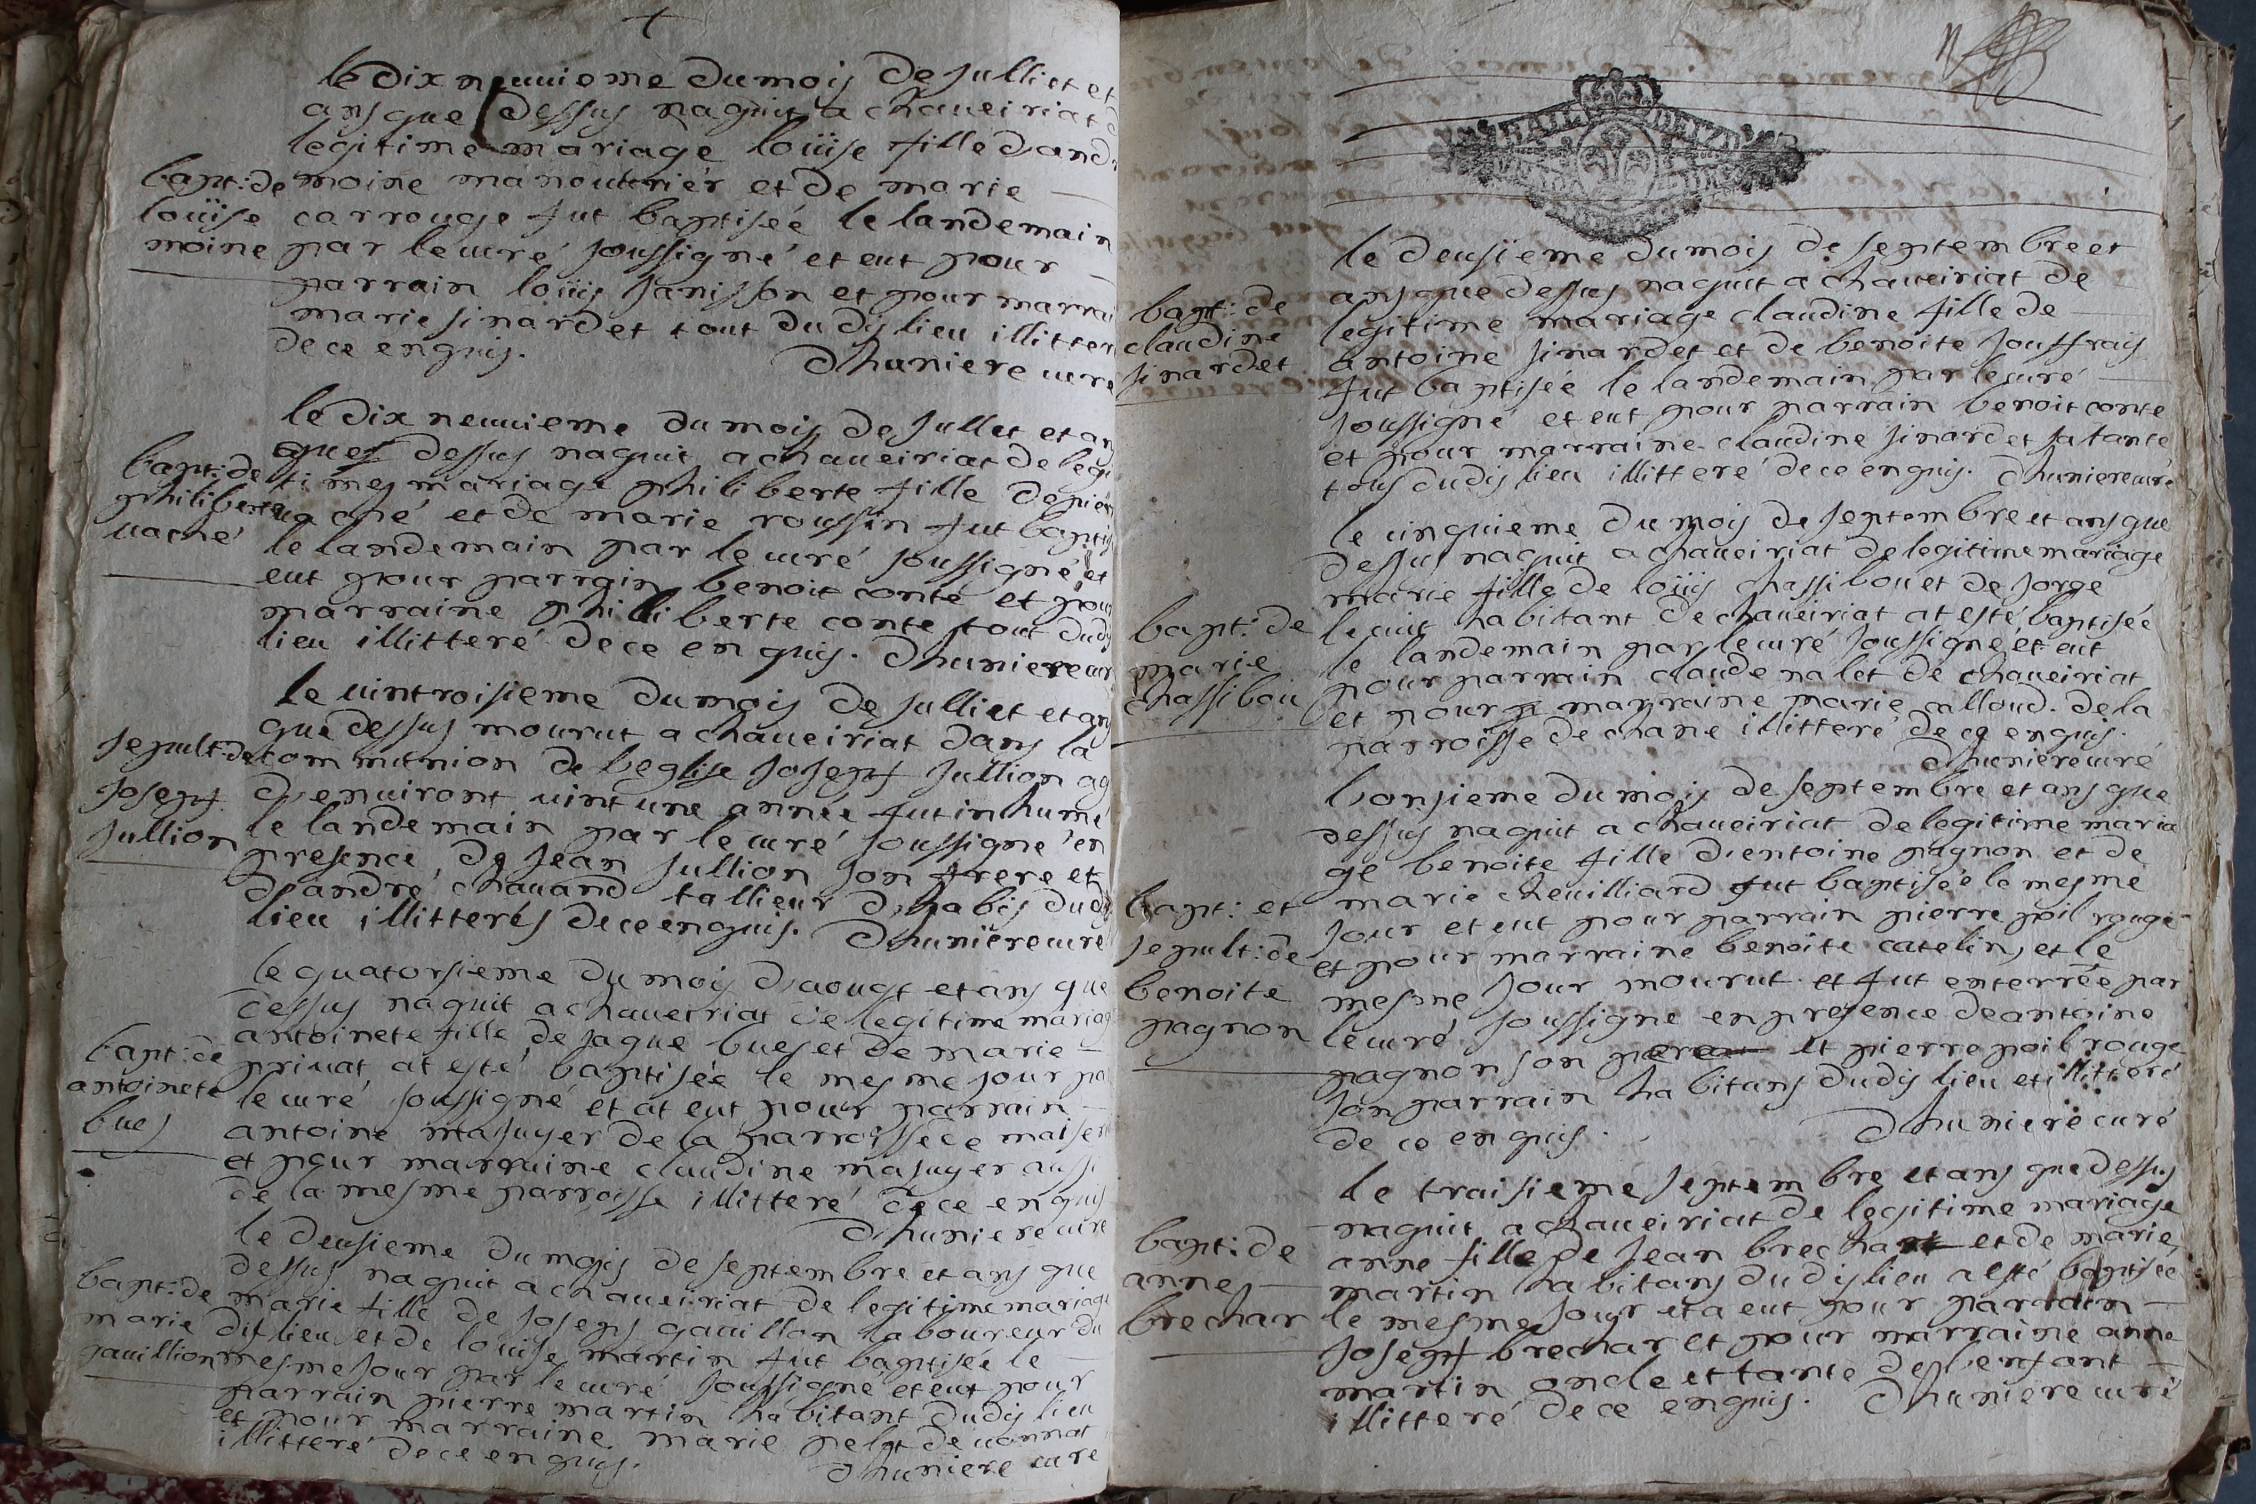 le dix neuuieme du mois de Julliet et
ans que dessus naquit a chaueiriat de
legitime mariage loüise fille d'and
bapt: de
loüise
moine
moine manouuriér et de marie
carrouge fut baptiseé le landemain
par le curé soussigné et eut pour
parrain loüis Janisson et pour marrai
marie sinardet tout du dis lieu illitter
de ce enquis.
Dhuniere cure
le dix neuuieme du mois de Jullet et an
ques dessus naquit a chaueiriat de legi
bapt: de
philiberte
uacné
times mariage philiberte fille de pier
uacné et de marie roussin fut baptis
le landemain par le curé soussigné et
eut pour parrain benoit conte et pour
marraine philiberte conte tout dudis
lieu illitteré de ce enquis. Dhuniere cur
le uintroisieme du mois de Julliet et ans
que dessus mourut a chaueiriat dans la
sepult: de
Josept
Jullion
communion de l'eglise Josept Jullion ag
d'enuiront uint une annéé fut inhumé
le landemain par le curé soussigné en
presence de Jean Jullion son frere et
d'andré chauand tallieur d'habis dudis
lieu illitterés de ce enquis. Dhuniere curé
le quatorsieme du mois d'aougt et ans que
dessus naquit a chaueiriat de legitime mariag
antoinete fille de Jaque bues et de marie
bapt: de
antoinete
bues
priuat at esté baptiseé le mesme Jour pa
le curé soussigné et at eut pour parrain
antoine masuyer de la parroisse de maiseri
et pour marraine claudine masuyer aussi
de la mesme parroisse illitteré de ce enquis
Dhuniere cure
le deusieme du mois de septembre et ans que
dessus naquit a chaueiriat de legitime mariage
bapt: de
marie
gauillion
marie fille de Joseps gauillon laboureur du
dit lieu et de louise martin fut baptiseé le
mesme Jour par le curé soussigné et eut pour
parrain pierre martin habitant dudis lieu
et pour marraine marie pelot de uonnat
illitteré de ce enquis.
Dhuniere cure
GNAL DE
le deusieme du mois de septembre et
ans que dessus naquit a chaueiriat de
bapt: de
claudine
sinardet
legitime mariage claudine fille de
antoine sinardet et de benoite souffrais
fut baptiseé le landemain par le curé
soussigné et eut pour parrain benoit conte
et pour marraine claudine sinardet sa tante
tous dudis lieu illitteré de ce enquis. Dhuniere curé
le cinquieme du mois de septembre et ans que
dessus naquit a chaueiriat de legitime mariage
marie fille de loüis chassibou et de Jorge
bapt: de
marie
chassibou
lecuit habitant de chaueiriat at esté baptiseé
le landemain par le curé soussigné et eut
pour parrain claude nalet de chaueiriat
et pour marraine marie calloud de la
parroisse de chane illitteré de ce enquis.
Dhuniere curé
l'onsieme du mois de septembre et ans que
dessus naquit a chaueiriat de legitime maria
ge benoite fille d'entoine pagnon et de
bapt: et
sepult: de
benoite
pagnon
marie cheuilliard fut baptiseé le mesme
Jour et eut pour parrain pierre poil rouge
et pour marraine benoite catelin, et le
mesme Jour mourut et fut enterreé par
le curé soussigne en presence de antoine
pagnon son pere et pierre poil rouge
son parrain habitans dudis lieu et illitteré
de ce enquis.
Dhuniere curé
le traisieme septembre et ans que dessus
naquit a chaueiriat de legitime mariage
bapt: de
annes
brechar
anne fille de Jean brechar et de marie
martin habitans dudis lieu a esté baptiseé
le mesme Jour et a eut pour parrain
Josept brechar et pour marraine anne
martin oncle et tante de l'enfant
illitteré de ce enquis. Dhuniere curé